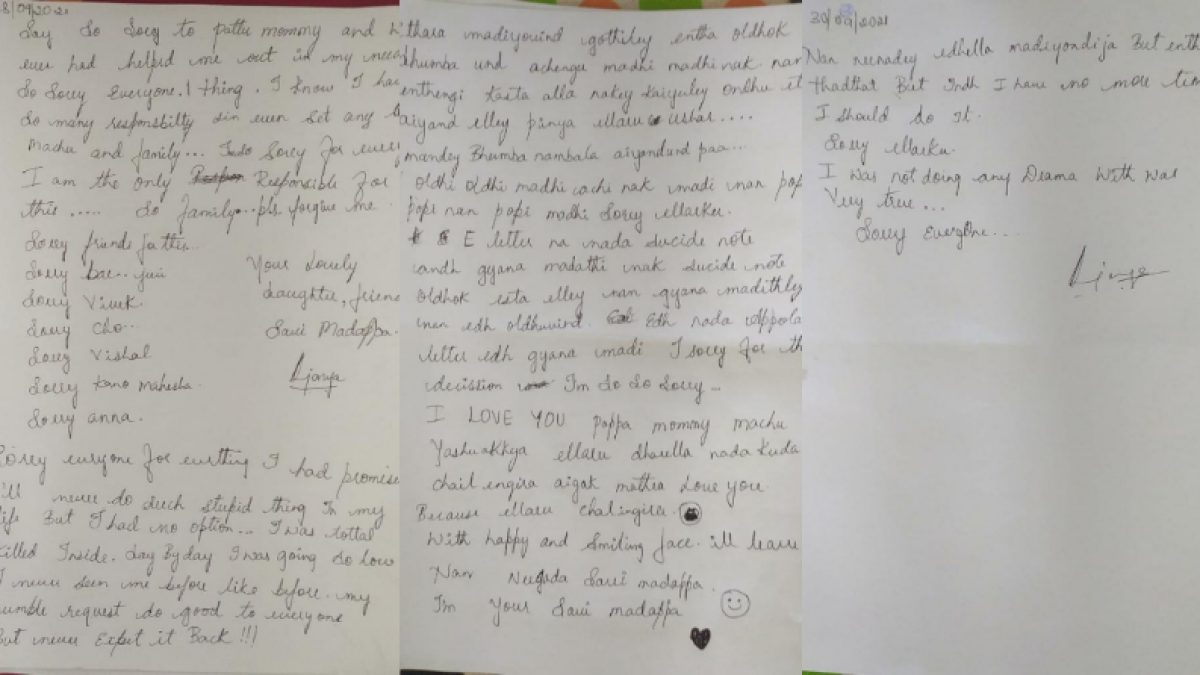 8/09/2021
Say So Sorry to pattu mommy and
ever had helped me out in my need
So Sorry Everyone. 1 thing. I know I have
So many responsbility din even set any
Machu and family... Sorry for every
I am the only Responsible for
this ..... So family...pls forgive me.
Sorry friends for this...
Sorry bae..
Sorry Vivek.
Sorry cho..
Sorry Vishal
Sorry kano mahesha.
Sorry anna.
Your Lovely
daughter, friend
Savi Madappa.
Sorry everyone for evrthing I had promise
ill never do such stupid thing In my
life But I had no option... I was tottal
killed Inside. day By day I was going So low
I never seen me before like before. my
humble request do good to everyone
But never Expet it Back !!!
thara madiyouind gothiley entha oldhok
bhumba und achengu madhi madhi nak. nan
enthengi kasta alla nakey kaiyuley ondhu it
aiyand elley pinya ellaru ushar....
mandey Bhumba nambala aiyandund paa...
oldhi oldhi madhi cachi nak madi nan pop
popi nan popi modhi Sorry ellarku.
E letter na nada sucide note
andh gyana madathi nak sucide note
oldhok esta elley nan gyana madithley
nan edh oldhuvind. Edh nada Appola
letter edh gyana madi I sorry for th
decistion Im So So Sorry...
I LOVE YOU pappa mommy machu
Yashu akkya ellaru dharella nada kuda
chail engira aigak mattra Love you.
Because ellaru chalingira.
With happy and Smiling face. ill leave
Nan Neegada Savi madappa.
I'm your Savi madappa
30/09/2021
Nan neenadey edhella madiyondija But enth
thadthat But Indh I have no more tim
I should do It.
Sorry ellarku.
I was not doing any Drama With was
Very true...
Sorry Everyone....